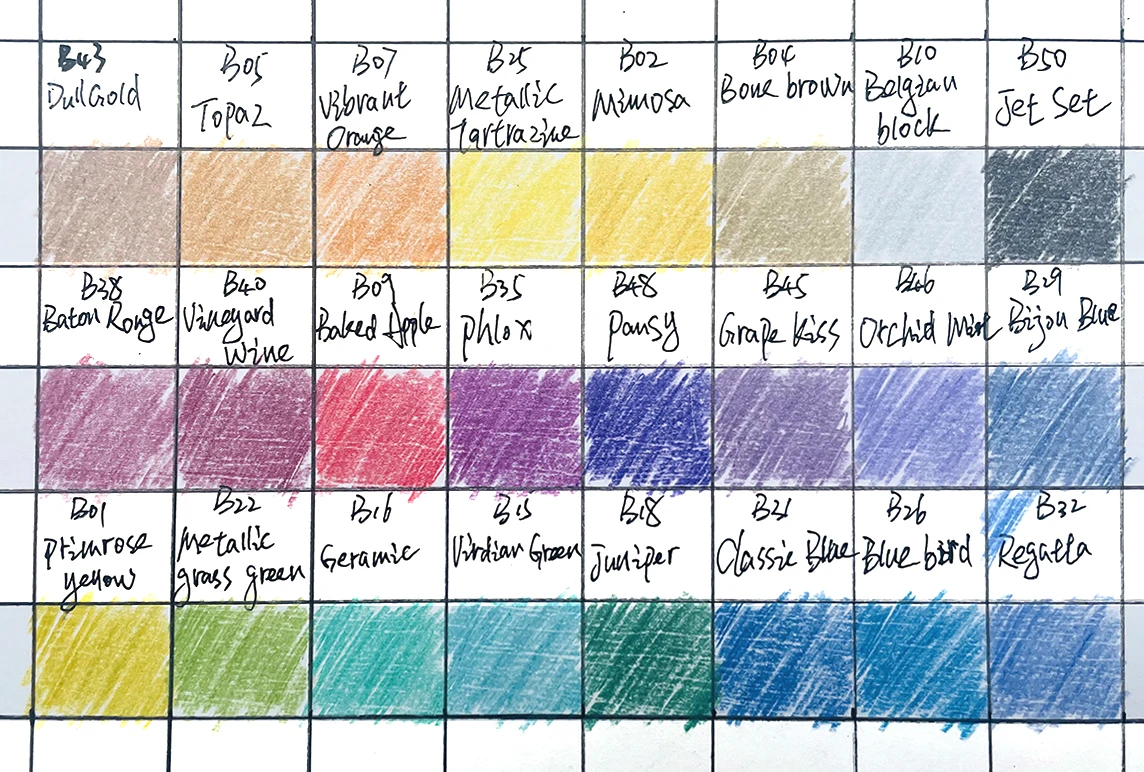 B43
Dull Gold
B05
Topaz
B07
Vibrant
Orange
B25
Metallic
Tartrazine
B02
Mimosa
B04
Bone brown
B10
Belgian
block
B50
Jet Set
B38
Baton Rouge
B40
Vineyard
Wine
B09
Baked Apple
B35
Phlox
B48
Pansy
B45
Grape Kiss
B46
Orchid Mist
B29
Bijou Blue
B01
Primrose
yellow
B22
Metallic
grass green
B16
Geramic
B15
Virdian Green
B18
Juniper
B21
Classic Blue
B26
Blue bird
B32
Regatta